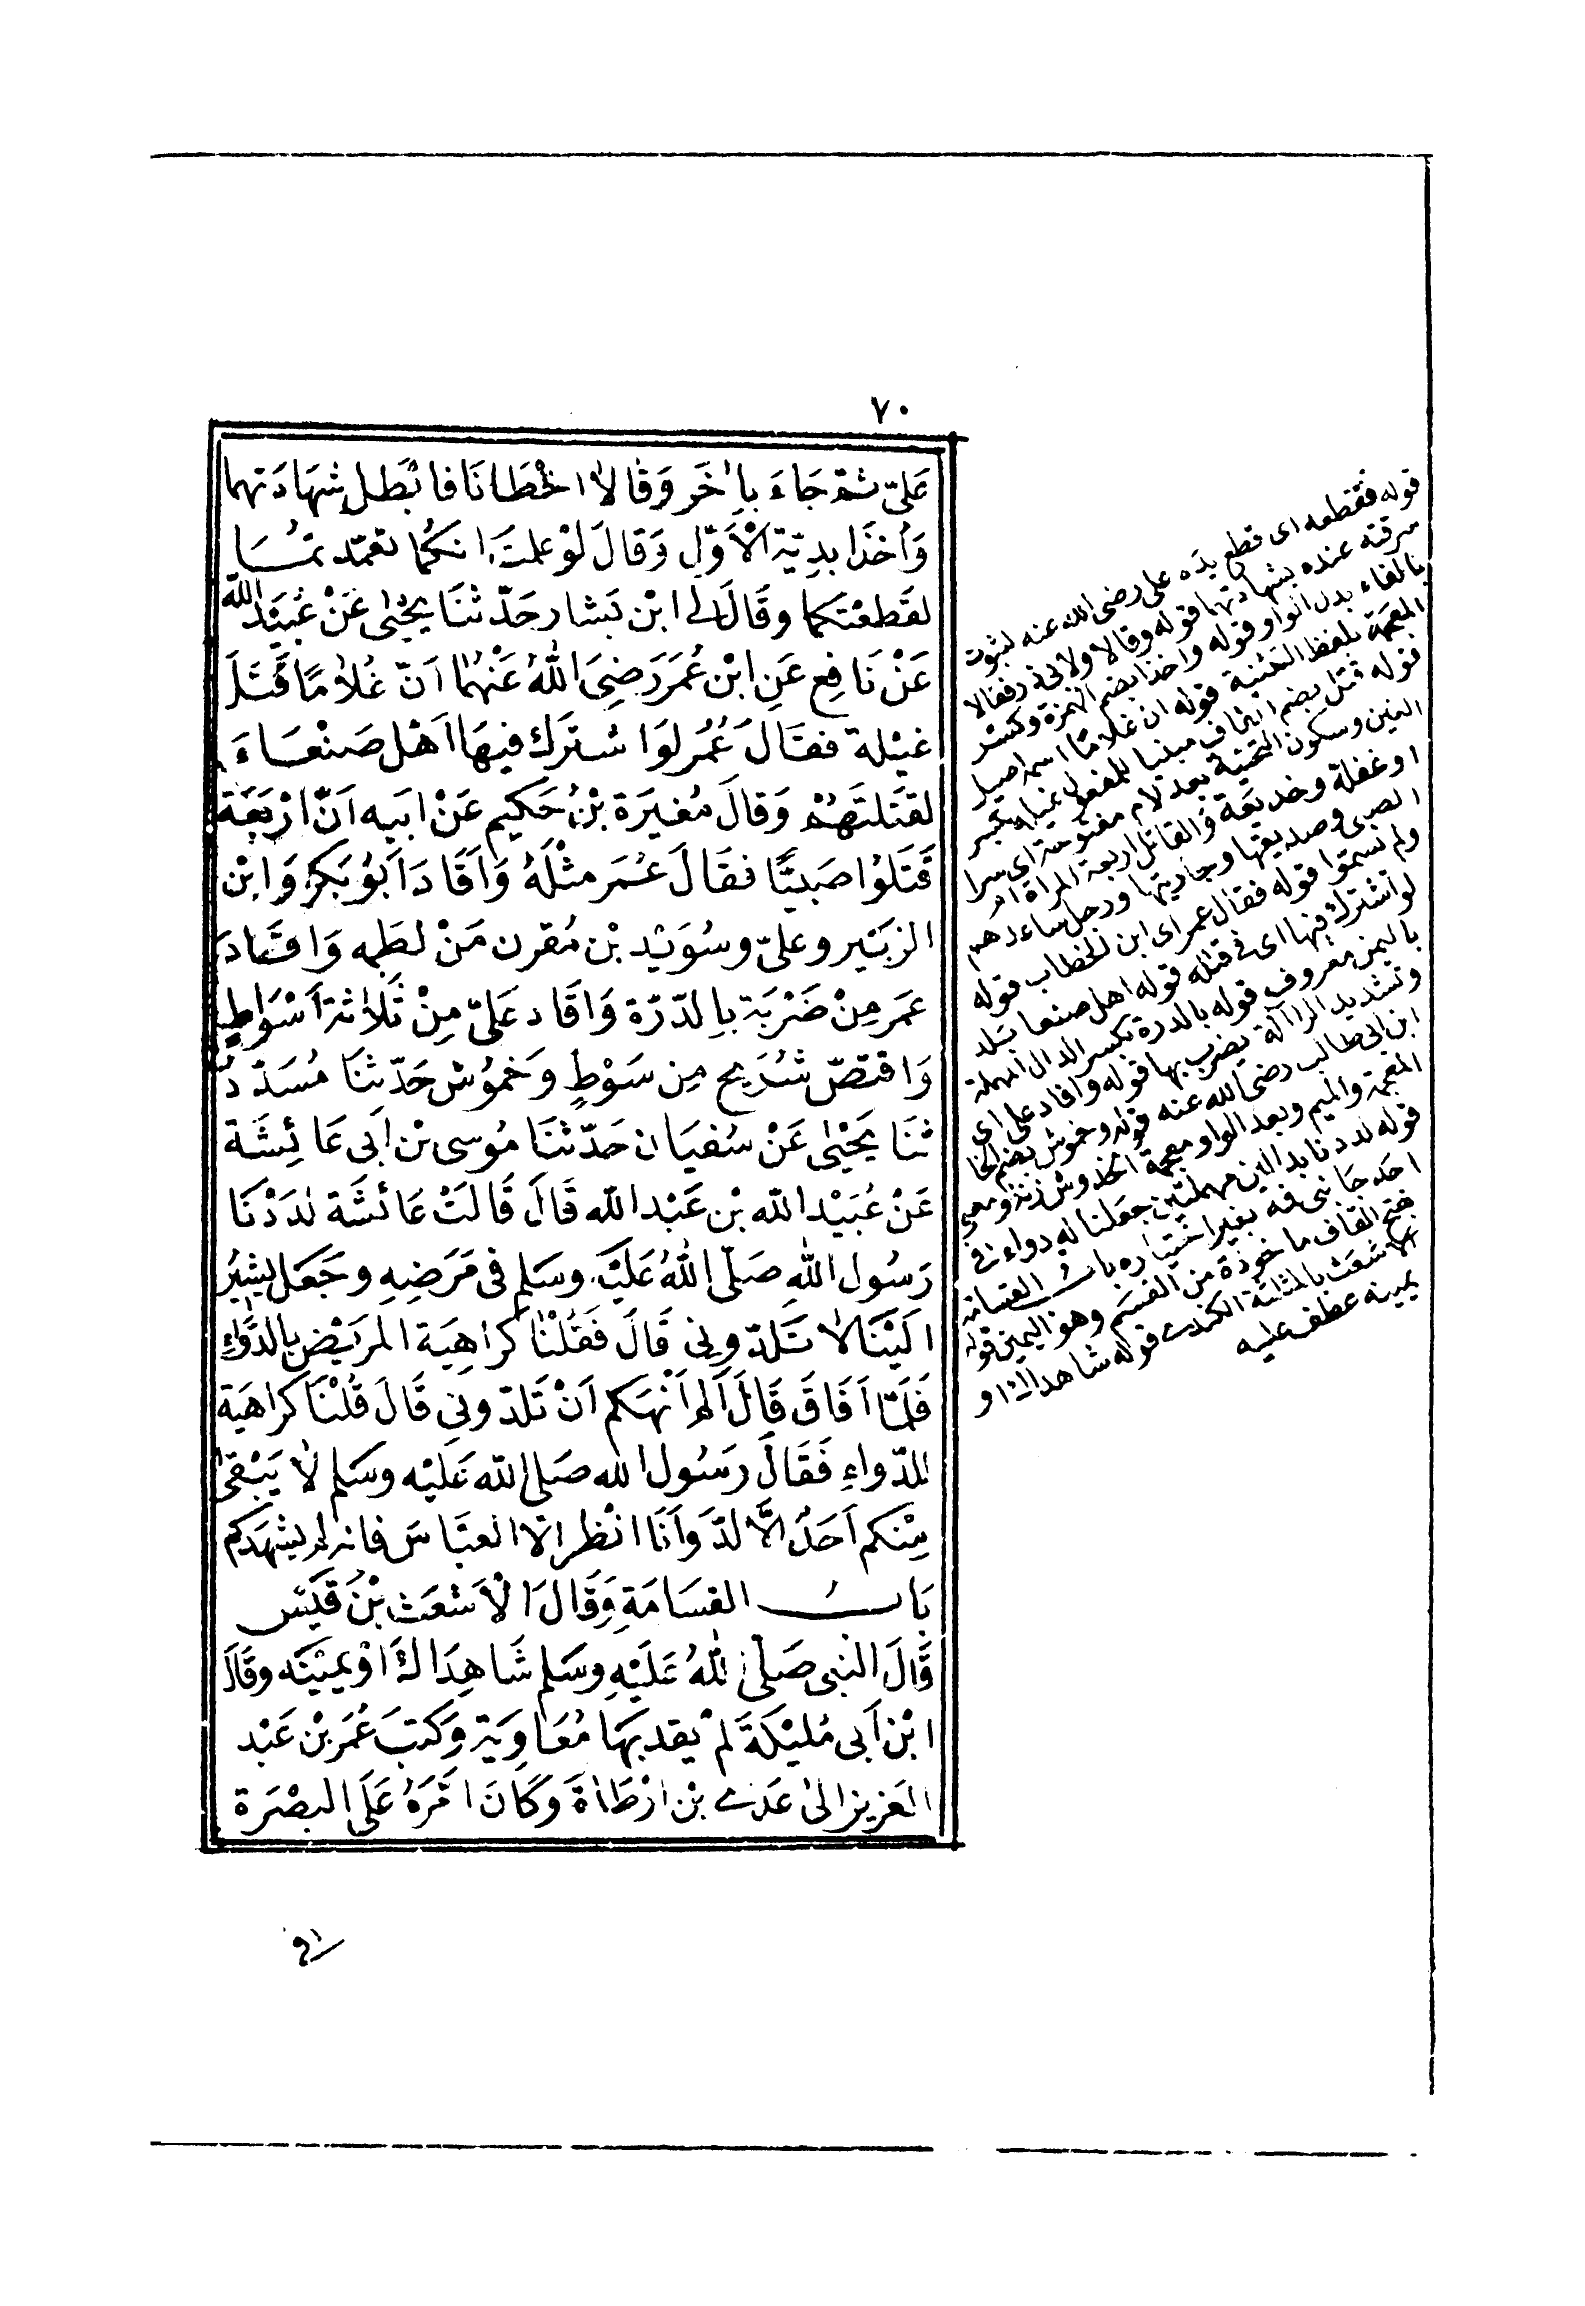 ٧٠
عَلِيّ ثمّ جَاءَ بِاٰخَر وَقَالَا اخْطَانَا فابْطَل شهَادَتهما
وَاُخذَا بدِيَة الْاَوّل وَقالَ لوْ علمتَ انكُما تعمّدتمَا
لقَطعْتكما وقَالَ لِي ابْن بَشار حَدّثنَا يحْيٰى عَنْ عُبَيْد اللّٰه
عَنْ نَافِع عَنِ ابْن عُمَرَ رَضِيَ اللّٰهُ عَنْهُما اَنّ غُلامًا قُتَلَ
غيْلة فقالَ عُمَر لَوَ اشترَك فيهَا اَهْل صَنْعَاءَ
لقتَلتهُمْ وَقالَ مُغيَرَة بْن حَكيم عَنْ ابَيه اَنّ ارْبَعَة
قَتَلوُا صَبيًّا فقَالَ عُمَر مثْلَهُ وَاَقَادَ اَبوُ بَكرٍ وَابْن
الزبَيْر وعليّ وسُوَيْد بْن مُقرن مَنْ لطَمه وَاقَادَ
عمَر مِنْ ضَرْبَة بالدّرّة وَاَقَاد عَليّ مِنْ ثَلاثة اَسْوَاطٍ
وَاقتصّ شُرَيح مِن سَوْطٍ وَخموُش حَدّثنَا مُسَدّدٌ
ثنَا يَحْيٰى عَنْ سُفيَان حَدّثنَا مُوسى بْن اَبى عَائِشَة
عَنْ عُبَيْد اللّه بْن عَبْد اللّه قَالَ قَالَتْ عَائشَة لدَدْنَا
رَسُول اللّٰهِ صَلّى اللّٰهُ عَليْه وسَلم فى مَرَضِهِ وجَعَل يشيُر
الَيْنَا لا تَلدّونى قَالَ فَقلْنا كرَاهِيَة المريْض بالدّوَاءِ
فَلمّا اَفَاقَ قَالَ اَلم اَنْهَكم اَنْ تَلدّونِي قَالَ قُلنَا كرَاهيَة
للدّواءِ فَقَالَ رَسُول اللّه صَلى اللّه عَليْه وسَلم لا يَبْقىٰ
مِنكم اَحَدٌ الَّا لدّ وَاَنَا انْظر الّا العبَاسَ فانه لم يشهَدكم
بَابُ القسَامَةِ وَقَالَ الْاَشعَث بْنُ قَيْس
قَالَ النبى صَلّى اللّٰهُ عَليْهِ وسَلم شَاهِدَاكَ اَوْ يميْنَه وقَالَ
ابْن اَبى مُليْكَةَ لمْ يقد بهَا مُعَاوِيَة وَكتبَ عُمَر بْن عَبْد
العَزيز الىٰ عَدى بْن ارْطَاةَ وَكَانَ امّرَهُ عَلَى البصْرَة
قوله فقطعه اى قطع يده على رضى الله عنه لثبوت
سرقته عنده بشهادتهما قوله وقالا ولابى ذر فقالا
بالفاء بدل الواو قوله واخذا بضم الهمزة وكسر
المعجمة بلفظ التثنية قوله ان غلامًا اسمه اصيل
قوله قتل بضم القاف مبنيا للمفعول غيلة بكسر
الغين وسكون التحتية بعد لام مفتوحة اى سرا
او غفلة وخديعة والقاتل اربعة المراة ام
الصبى وصديقها وجاريتها ورجل ساعدهم
ولم يسمّوا قوله فقال عمر اى ابن الخطاب قوله
لو اشترك فيها اى فى قتله قوله اهل صنعا بلد
باليمن معروف قوله بالدرة بكسر الدال المهملة
وتشديد الراالة يضرب بها قوله واقاد على اى
ابن ابى طالب رضى الله عنه قوله وخموش بضم الخا
المعجمة والميم وبعد الواو معجمة الخدوش زنة ومعنى
قوله لددنا بدالين مهملتين جعلنا له دواء فى
احد جانبى فمه بغير اختياره باب القسامة
بفتح القاف ماخوذة من القسم وهو اليمين قوله
الاشعث بالمثلثة الكندى قوله شاهداك او
يمينه عطف عليه